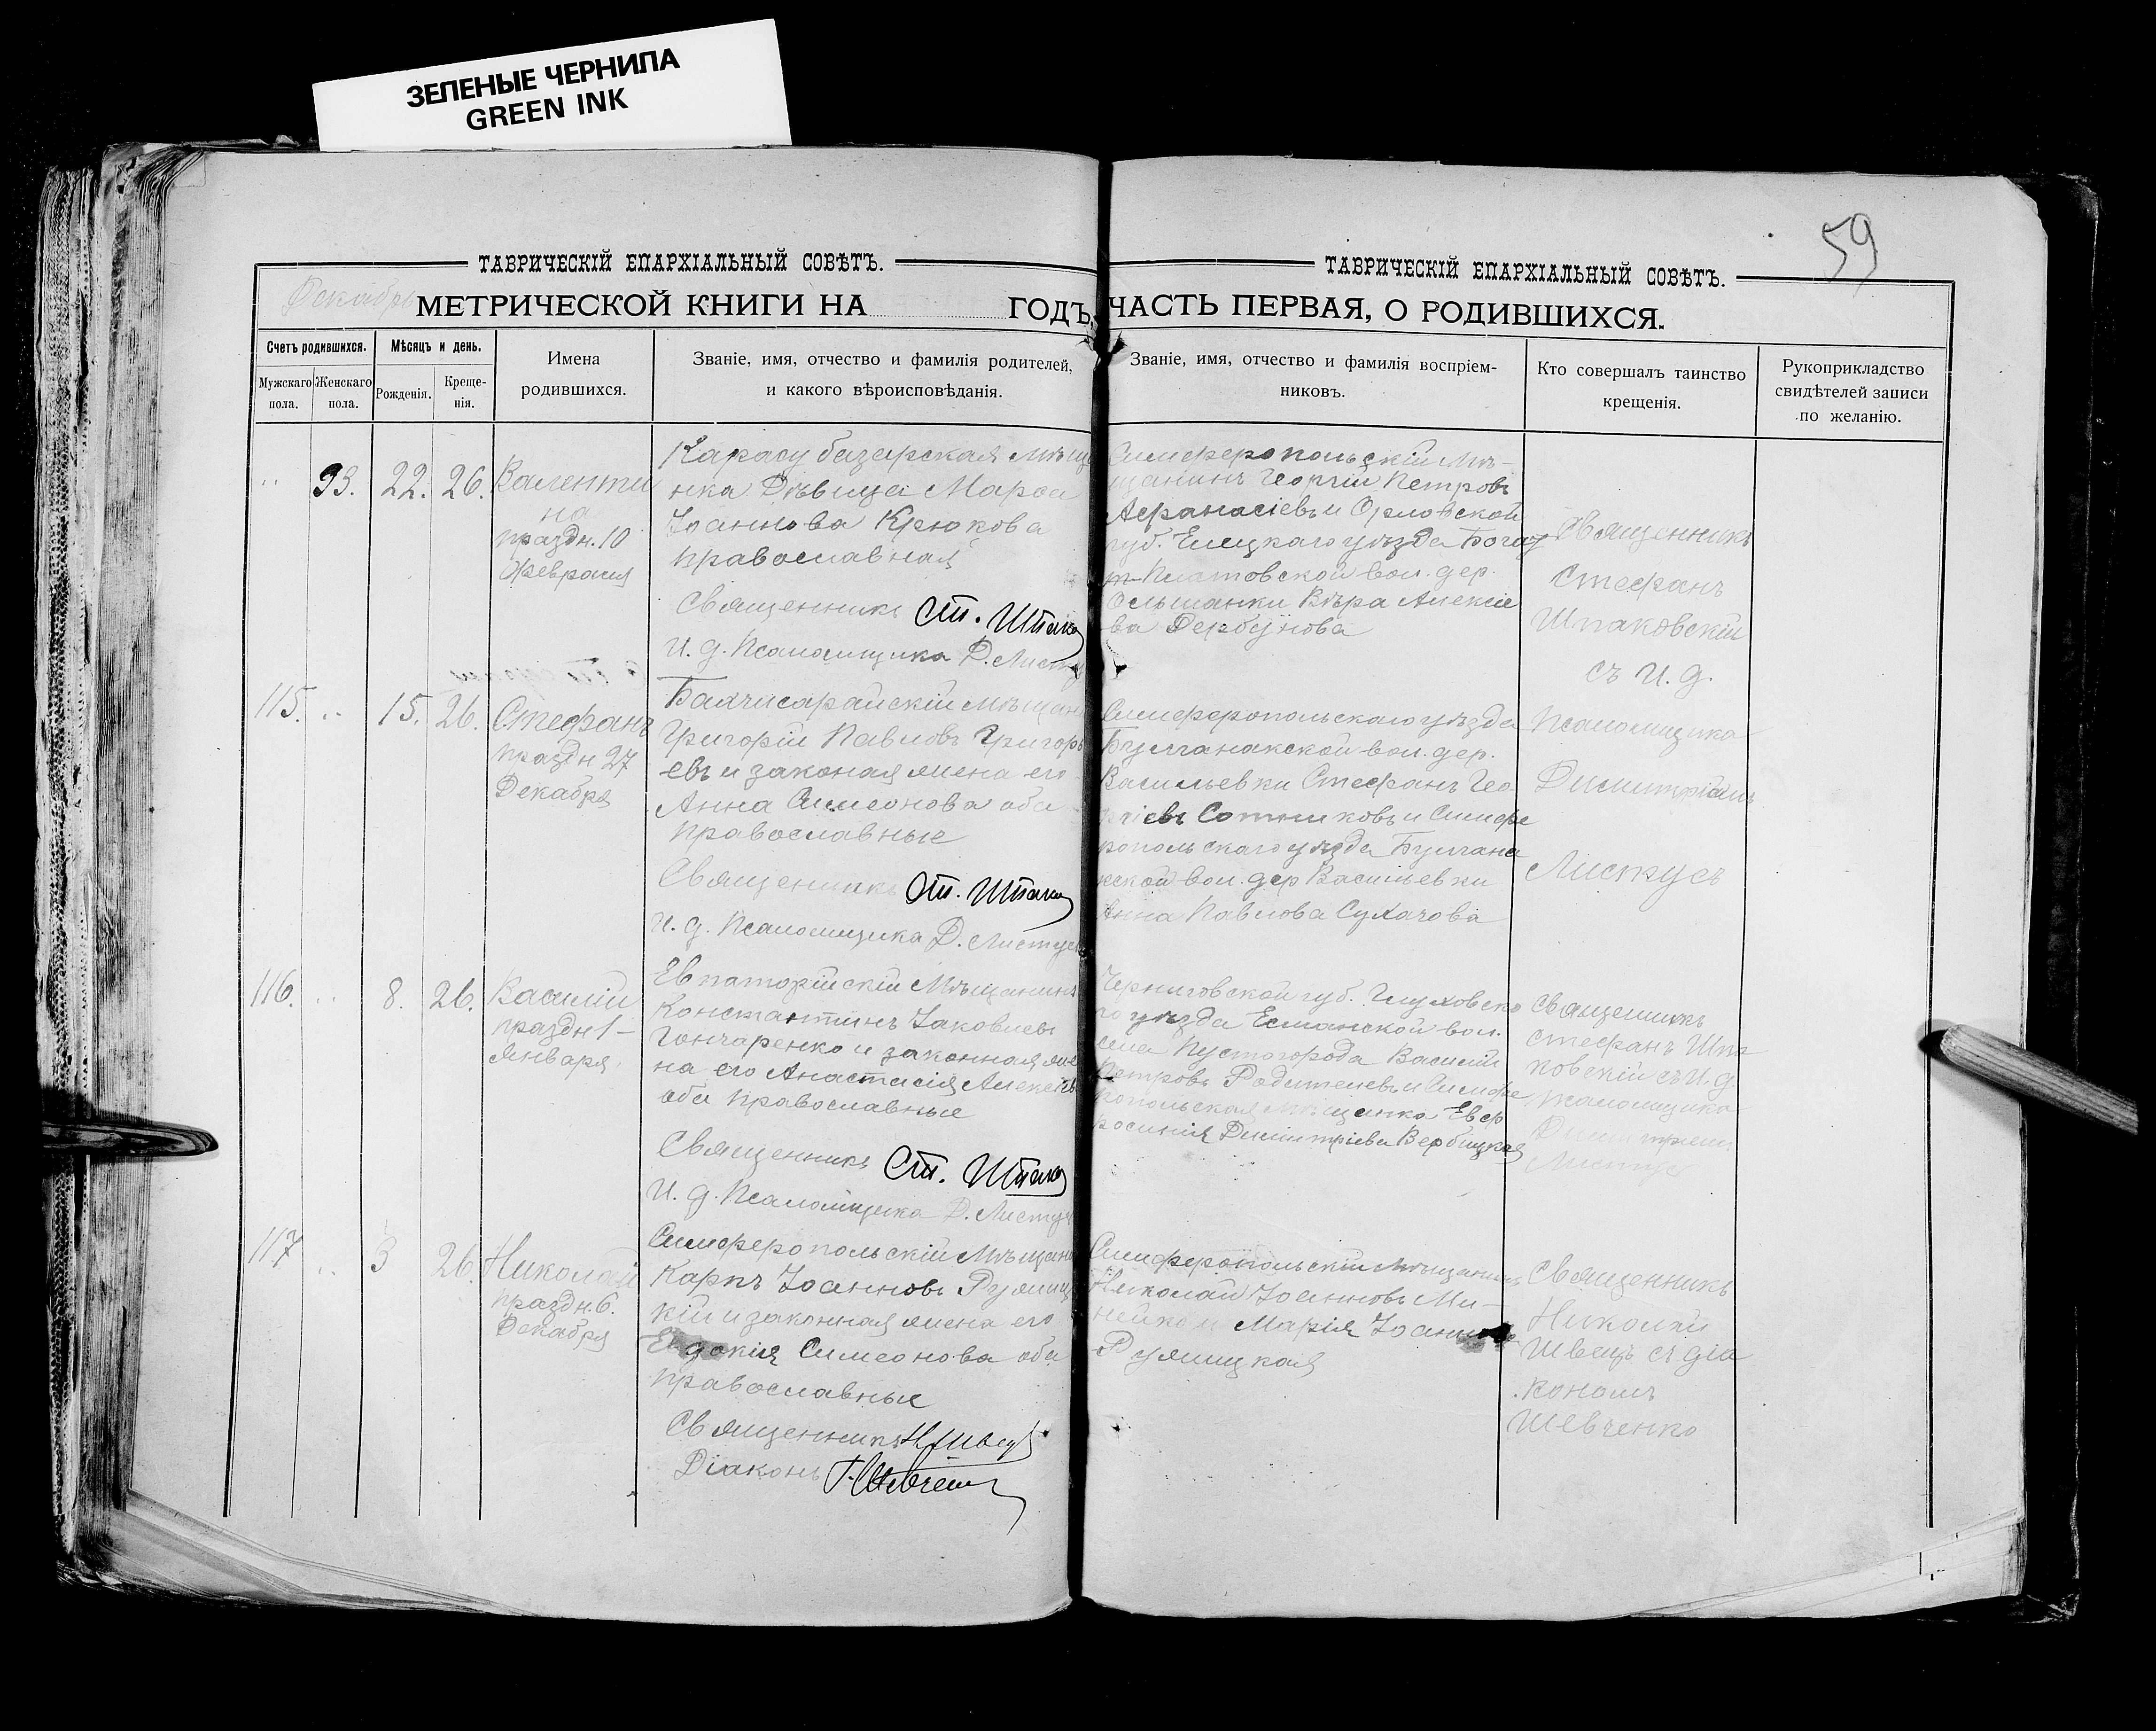 ЗЕЛЕНЫЕ ЧЕРНИЛА
GREEN INK
59
ТАВРИЧЕСКІЙ ЕПАРХІАЛЬНЫЙ СОВѢТЪ.
Декабрь
МЕТРИЧЕСКОЙ КНИГИ НА ГОДЪ,
Счетъ родившихся.
Мужскаго пола.
Женскаго пола.
Мѣсяцъ и день.
Рожденія.
Креще-
нія.
Имена
родившихся.
Званіе, имя, отчество и фамилія родителей,
и какого вѣроисповѣданія.
ТАВРИЧЕСКІЙ ЕПАРХІАЛЬНЫЙ СОВѢТЪ.
ЧАСТЬ ПЕРВАЯ, О РОДИВШИХСЯ.
Званіе, имя, отчество и фамилія воспріем-
никовъ.
Кто совершалъ таинство
крещенія.
Рукоприкладство
свидѣтелей записи
по желанію.
" 93. 22. 26.
Валенти
на
праздн. 10
Февраля
Карасубазарская мѣща
нка Дѣвица Марѳа
Іоаннова Крюкова
православная
Священникъ Ст. Шпак
И. д. Псаломщика Д. Листу
Симферопольскій мѣ-
щанинъ Георгій Петровъ
Афанасіевъ и Орловской
губ. Елецкаго уѣзда
Платовской вол. дер.
Ольшанки Вѣра Алексіе
ва Дербунова
Священникъ
Стефанъ
Шпаковскій
съ И. д.
Псаломщика
Димитріемъ
Листусъ
115. " 15. 26.
Стефанъ
праздн 27
Декабря
Бахчисарайскій мѣщан
Григорій Павловъ Григорь
евъ и законая жена его
Анна Симеонова оба
православные
Священникъ Ст. Шпак
И. д. Псаломщика Д. Листус
Симферопольскаго уѣзда
Булганакской вол. дер.
Васильевки Стефанъ Гео
ргіевъ Сотниковъ и Симфе
ропольскаго уѣзда Булгана
кской вол. дер Васильевки
Анна Павлова Сухачова
116. " 8. 26.
Василій
праздн 1-
Января.
Евпаторійскій Мѣщанинъ
Константинъ Іаковлевъ
Гончаренко и законная же
на его Анастасія Алексѣев
оба православные
Священникъ Ст. Шпак
И. д. Псаломщика Д. Листус
Черниговской губ. Глуховска
го уѣзда Есманской вол.
села Пустогорода Василій
Петровъ Родителевъ и Симфе
ропольская мѣщанка Евф
росинія Димитріева Вербицкая
Священникъ
Стефанъ Шпа
ковскій съ И. д.
псаломщика
Димитріем
Листус
117 " 3 26.
Николай
праздн. 6.
Декабря
Симферопольскій Мѣщани
Карпъ Іоанновъ Ружиц
кій и законная жена его
Евдокія Симеонова оба
православные
Священникъ Н Швец
Діаконъ Г. Шевчен
Симферопольскій мѣщанинъ
Николай Іоанновъ Ми-
нейко и Марія Іоаннова
Ружицкая
Священникъ
Николай
Швецъ съ діа
кономъ
Шевченко